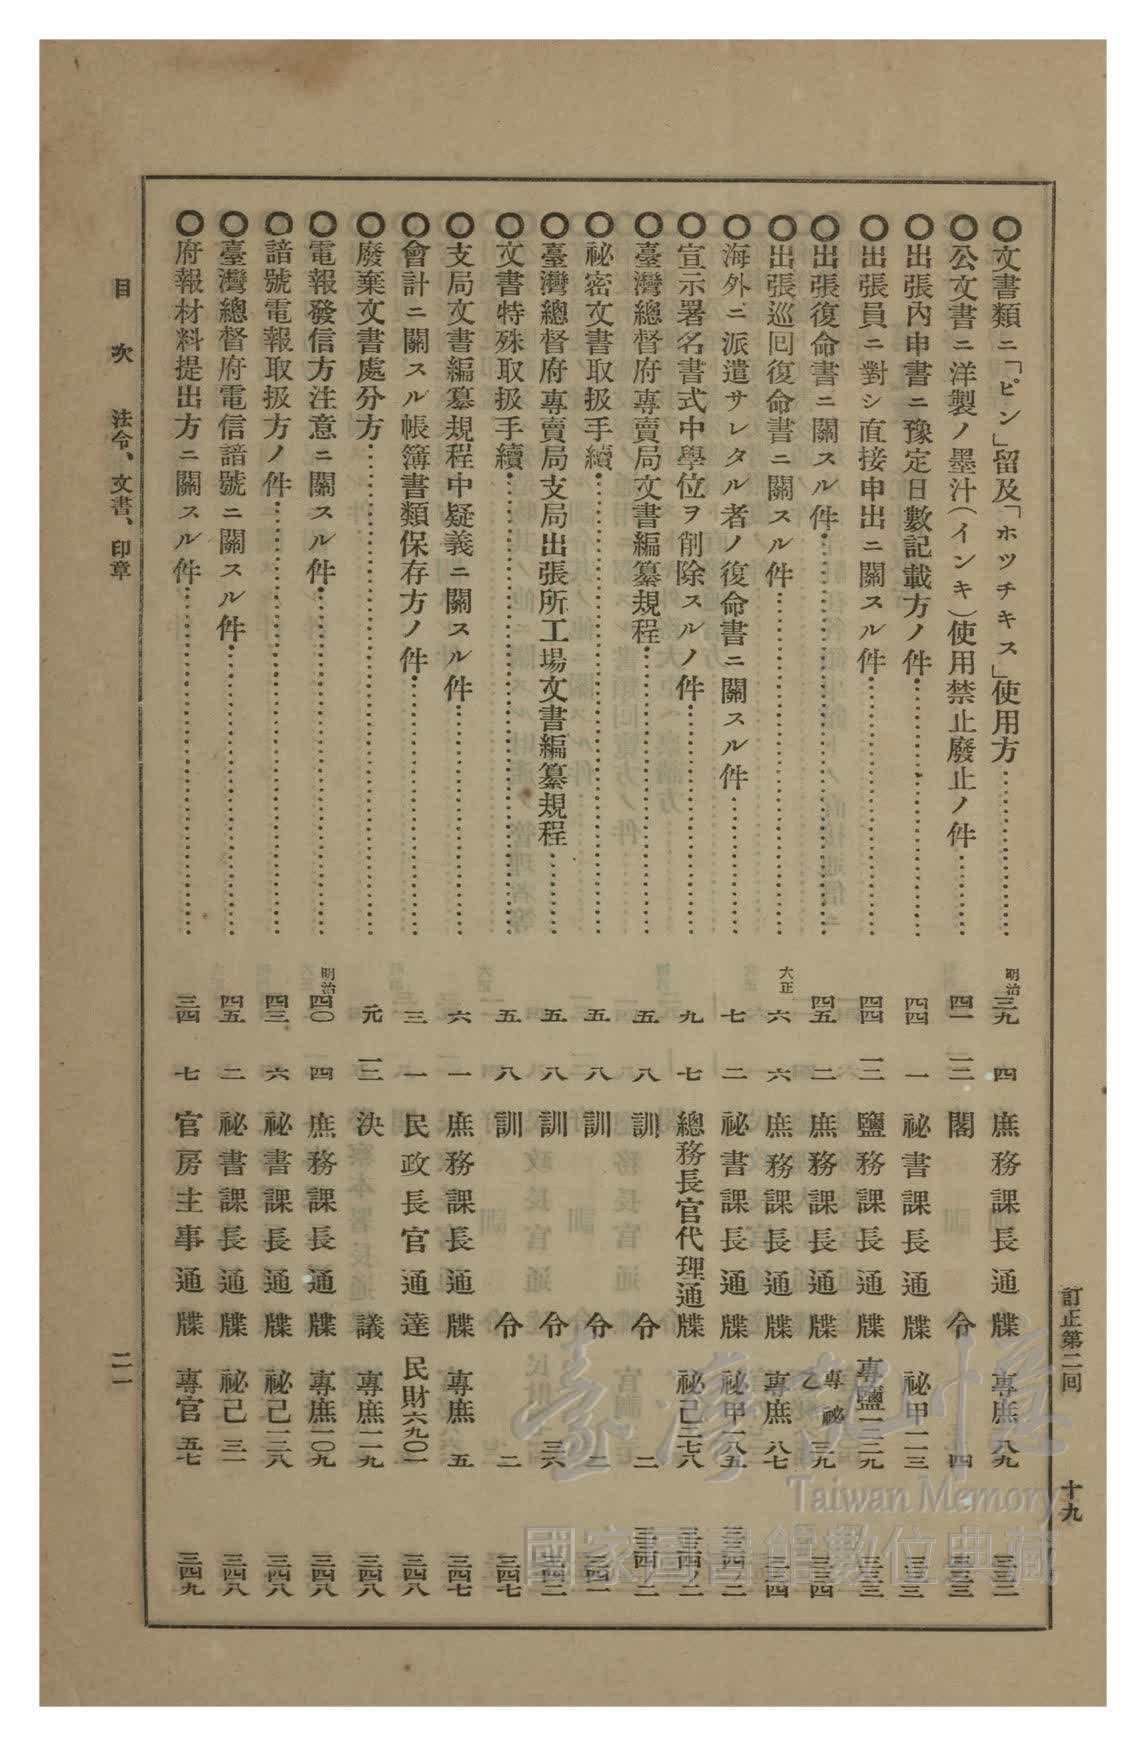 訂正第二回 十九
○文書類ニ「ピン」留及「ホツチキス」使用方………… 明治三九 四 庶務課長通牒 專庶八九 三三二
○公文書ニ洋製ノ墨汁（インキ）使用禁止廢止ノ件………… 四一 一二 閣令 四 三三三
○出張內申書ニ豫定日數記載方ノ件………… 四四 一 祕書課長通牒 祕甲一一三 三三三
○出張員ニ對シ直接申出ニ關スル件………… 四四 一二 鹽務課長通牒 專鹽一三二九 三三三
○出張復命書ニ關スル件………… 四五 二 庶務課長通牒 專祕乙三九 三三四
○出張巡回復命書ニ關スル件………… 大正六 六 庶務課長通牒 專庶八七 三三四
○海外ニ派遣サレタル者ノ復命書ニ關スル件………… 七 二 祕書課長通牒 祕甲一八五
○宣示署名書式中學位ヲ削除スルノ件………… 九 七 總務長官代理通牒 祕己二七八
○臺灣總督府專賣局文書編纂規程………… 五 八 訓令 二
○祕密文書取扱手續………… 五 八 訓令 二 三四一
○臺灣總督府專賣局支局出張所工場文書編纂規程………… 五 八 訓令 三六 三四三
○文書特殊取扱手續………… 五 八 訓令 二 三四七
○支局文書編纂規程中疑義ニ關スル件………… 六 一 庶務課長通牒 專庶五 三四七
○會計ニ關スル帳簿書類保存方ノ件………… 三 一 民政長官通達 民財六九〇一 三四八
○廢棄文書處分方………… 元 一二 決議 專庶一一九 三四八
○電報發信方注意ニ關スル件………… 明治四〇 四 庶務課長通牒 專庶一〇九 三四八
○諳號電報取扱方ノ件………… 四三 六 祕書課長通牒 祕己一二八 三四八
○臺灣總督府電信諳號ニ關スル件………… 四五 二 祕書課長通牒 祕己三一 三四八
○府報材料提出方ニ關スル件………… 三四 七 官房主事通牒 專官五七 三四九
目次 法令、文書、印章 二一
臺灣記憶
Taiwan Memory
國家圖書館數位典藏